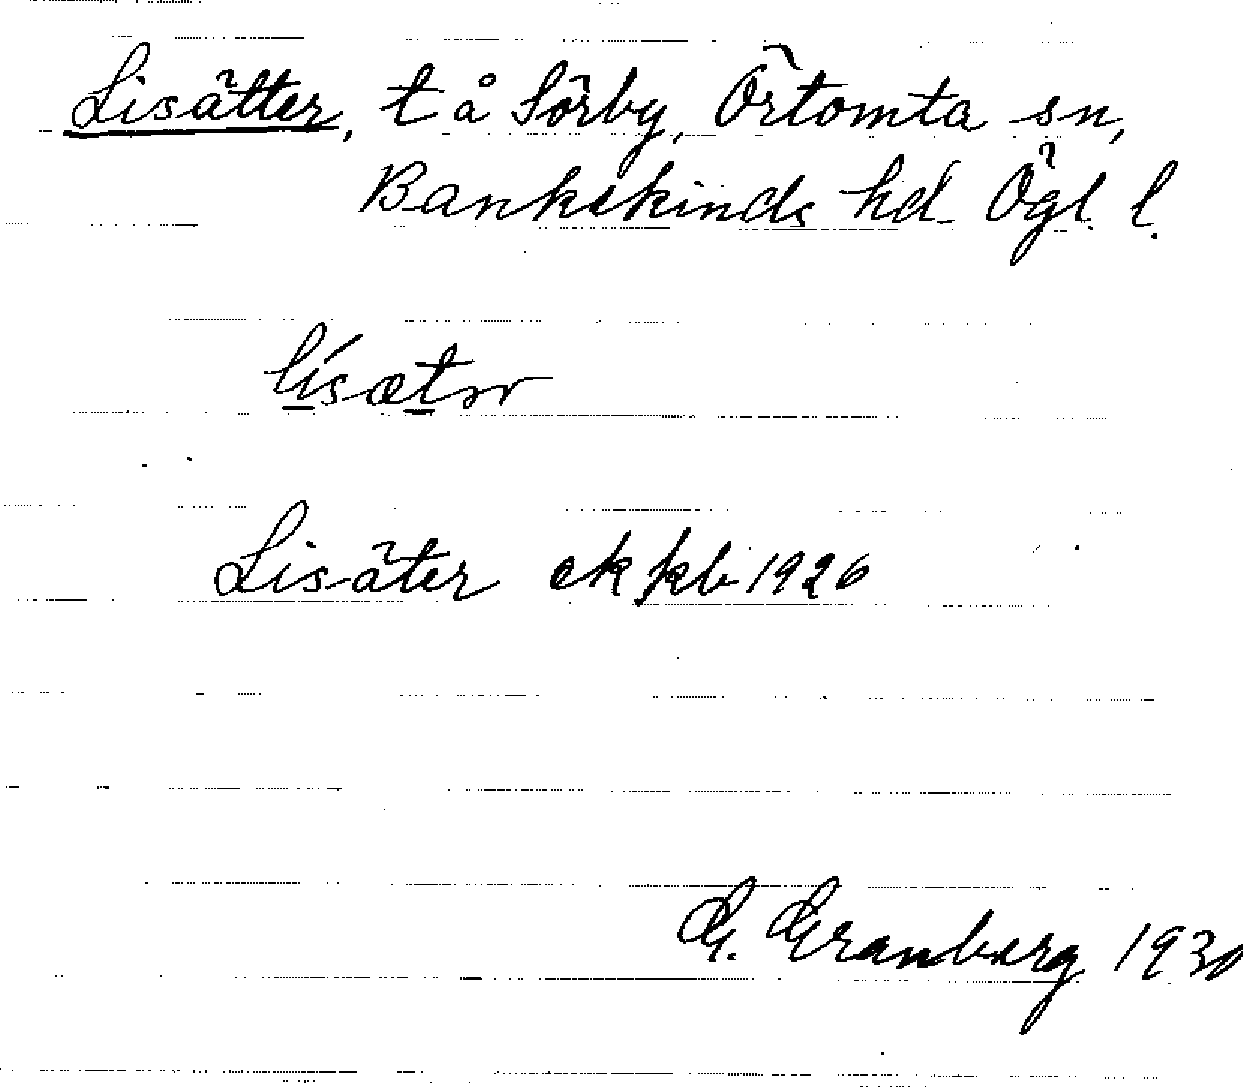 Lisätter, t å Sörby, Örtomta sn,
Bankekinds hd Ögl. l.
lísætər
Lisäter ekkb 1926
G. Granberg 1930